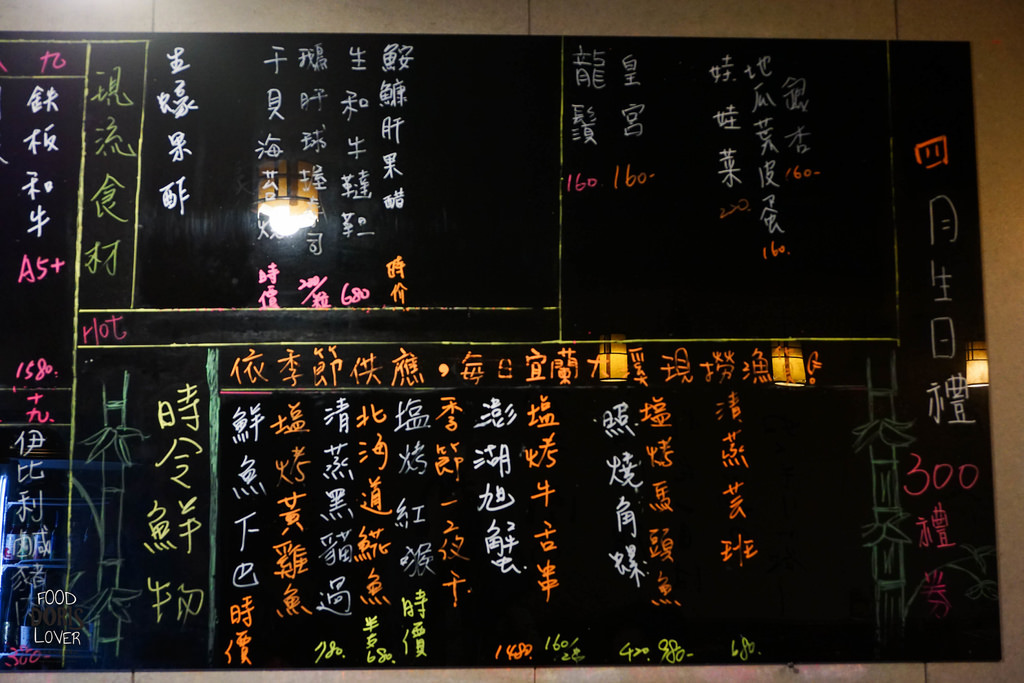 四月生日禮
300禮券
銀杏
160-
地瓜葉皮蛋
160.
娃娃菜
220.
皇宮
160-
龍鬚
160.
鮟鱇肝果醋
時价
生和牛韃靼
680
鵝肝球握壽司
干貝海苔燒
時價
生蠔果酢
現流食材
九
鉄板和牛
A5+
1580.
Hot
依季節供應，每日宜蘭大溪現撈漁
清蒸芸班
680.
塩烤馬頭魚
980-
照燒角螺
420.
塩烤牛舌串
160/2串
澎湖旭蟹
1480.
季節一夜干
塩烤紅喉
時價
北海道䱋魚
半卖680.
清蒸黑貓過
780.
塩烤黃雞魚
鮮魚下巴
時價
時令鮮物
十九
伊比利鹹豬
300-
FOOD
DORIS
LOVER